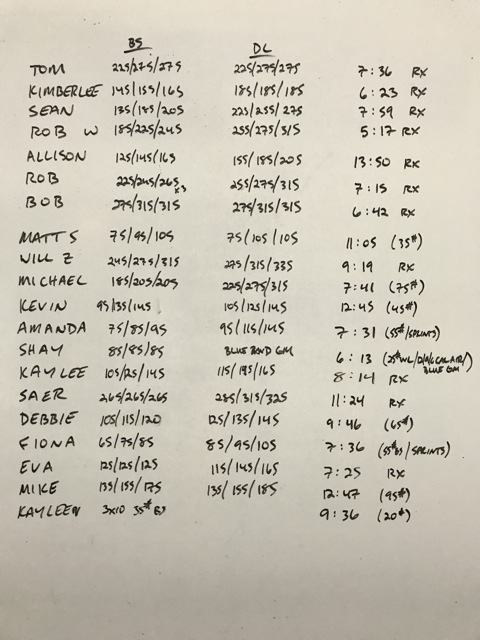 BS DL
TOM 225/275/275 225/275/275 7:36 RX
KIMBERLEE 145/155/165 185/185/185 6:23 RX
SEAN 135/185/205 225/255/275 7:59 RX
ROB W 185/225/245 255/275/315 5:17 RX
ALLISON 125/145/165 155/185/205 13:50 RX
ROB 225/245/265 x3 255/275/315 7:15 RX
BOB 275/315/315 275/315/315 6:42 RX
MATT S 75/95/105 75/105/105 11:05 (35#)
WILL Z 245/275/315 275/315/335 9:19 RX
MICHAEL 185/205/205 225/275/315 7:41 (75#)
KEVIN 95/135/145 105/125/145 12:45 (45#)
AMANDA 75/85/95 95/115/145 7:31 (55#/SPLINTS)
SHAY 85/85/85 BLUE BAND GM 6:13 (25#WL/ CAL AIR/ BLUE GM)
KAYLEE 105/125/145 115/145/165 8:14 RX
SAER 265/265/265 285/315/325 11:24 RX
DEBBIE 105/115/120 125/135/145 9:46 (65#)
FIONA 65/75/85 85/95/105 7:36 (55# /SPLINTS)
EVA 125/125/125 115/145/165 7:25 RX
MIKE 135/155/175 135/155/185 12:47 (95#)
KAYLEEN 3x10 35# BS 9:36 (20#)